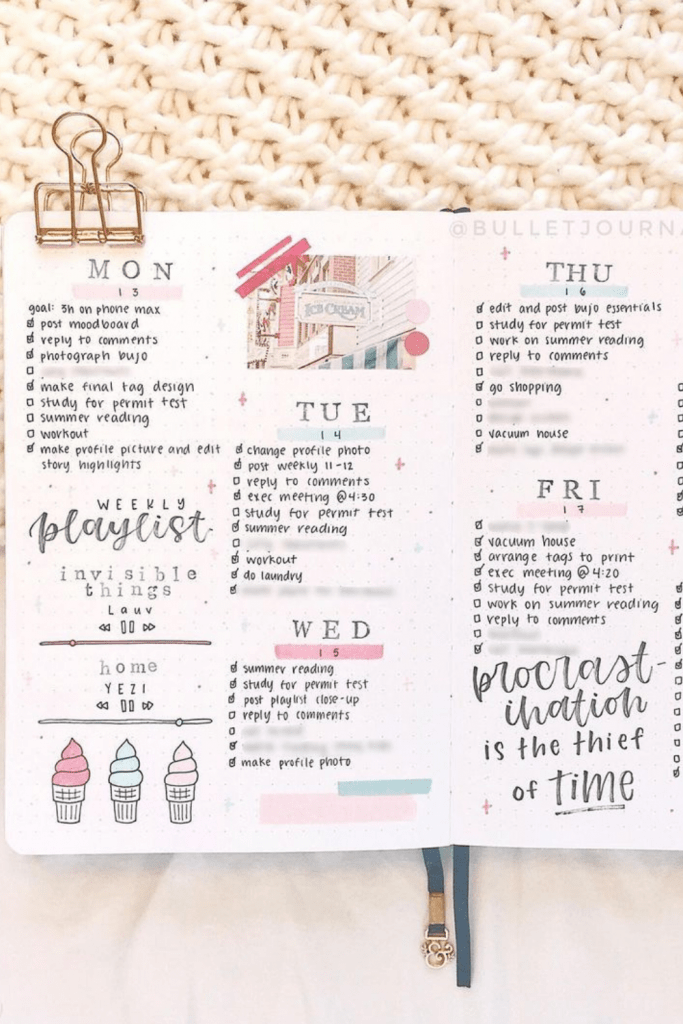 @BULLETJOURNA
MON
13
goal: 3h on phone max
post moodboard
reply to comments
photograph bujo
make final tag design
study for permit test
summer reading
workout
make profile picture and edit
story highlights
WEEKLY
playlist
invisible
things
Lauv
home
YEZI
ICE CREAM
TUE
14
change profile photo
post weekly 11-12
reply to comments
exec meeting @4:30
study for permit test
summer reading
workout
do laundry
WED
15
summer reading
study for permit test
post playlist close-up
reply to comments
make profile photo
THU
16
edit and post bujo essentials
study for permit test
work on summer reading
reply to comments
go shopping
vacuum house
FRI
17
vacuum house
arrange tags to print
exec meeting @ 4:20
study for permit test
work on summer reading
reply to comments
procrast-
ination
is the thief
of time